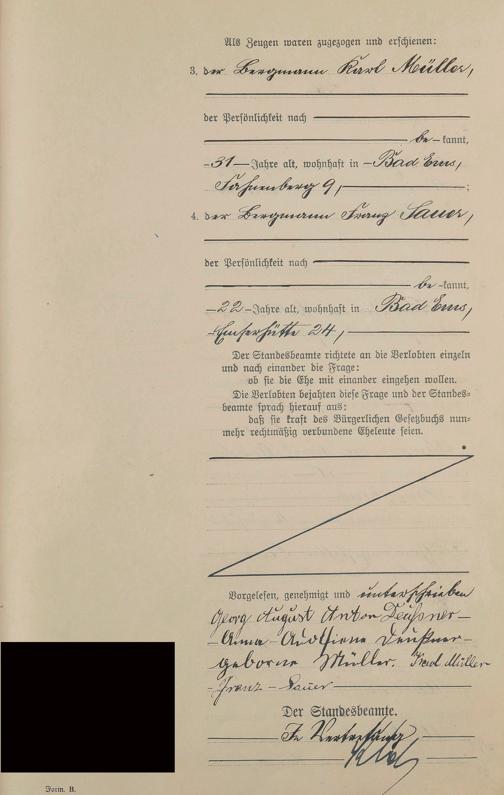 Als Zeugen waren zugezogen und erschienen:
3. der Bergmann Karl Müller,
der Persönlichkeit nach
be-kannt,
-31- Jahre alt, wohnhaft in -Bad Ems,
Fahnenberg 9,- ;
4. der Bergmann Franz Sauer,
der Persönlichkeit nach
be-kannt,
-22- Jahre alt, wohnhaft in Bad Ems,
-Emserhütte 24,-
Der Standesbeamte richtete an die Verlobten einzeln
und nach einander die Frage:
ob sie die Ehe mit einander eingehen wollen.
Die Verlobten bejahten diese Frage und der Standes-
beamte sprach hierauf aus:
daß sie kraft des Bürgerlichen Gesetzbuchs nun-
mehr rechtmäßig verbundene Eheleute seien.
Vorgelesen, genehmigt und unterschrieben
Georg August Anton
-Anna-
-geborne Müller. Karl Müller
-Franz-Sauer
Der Standesbeamte.
In Vertretung,
Form. B.